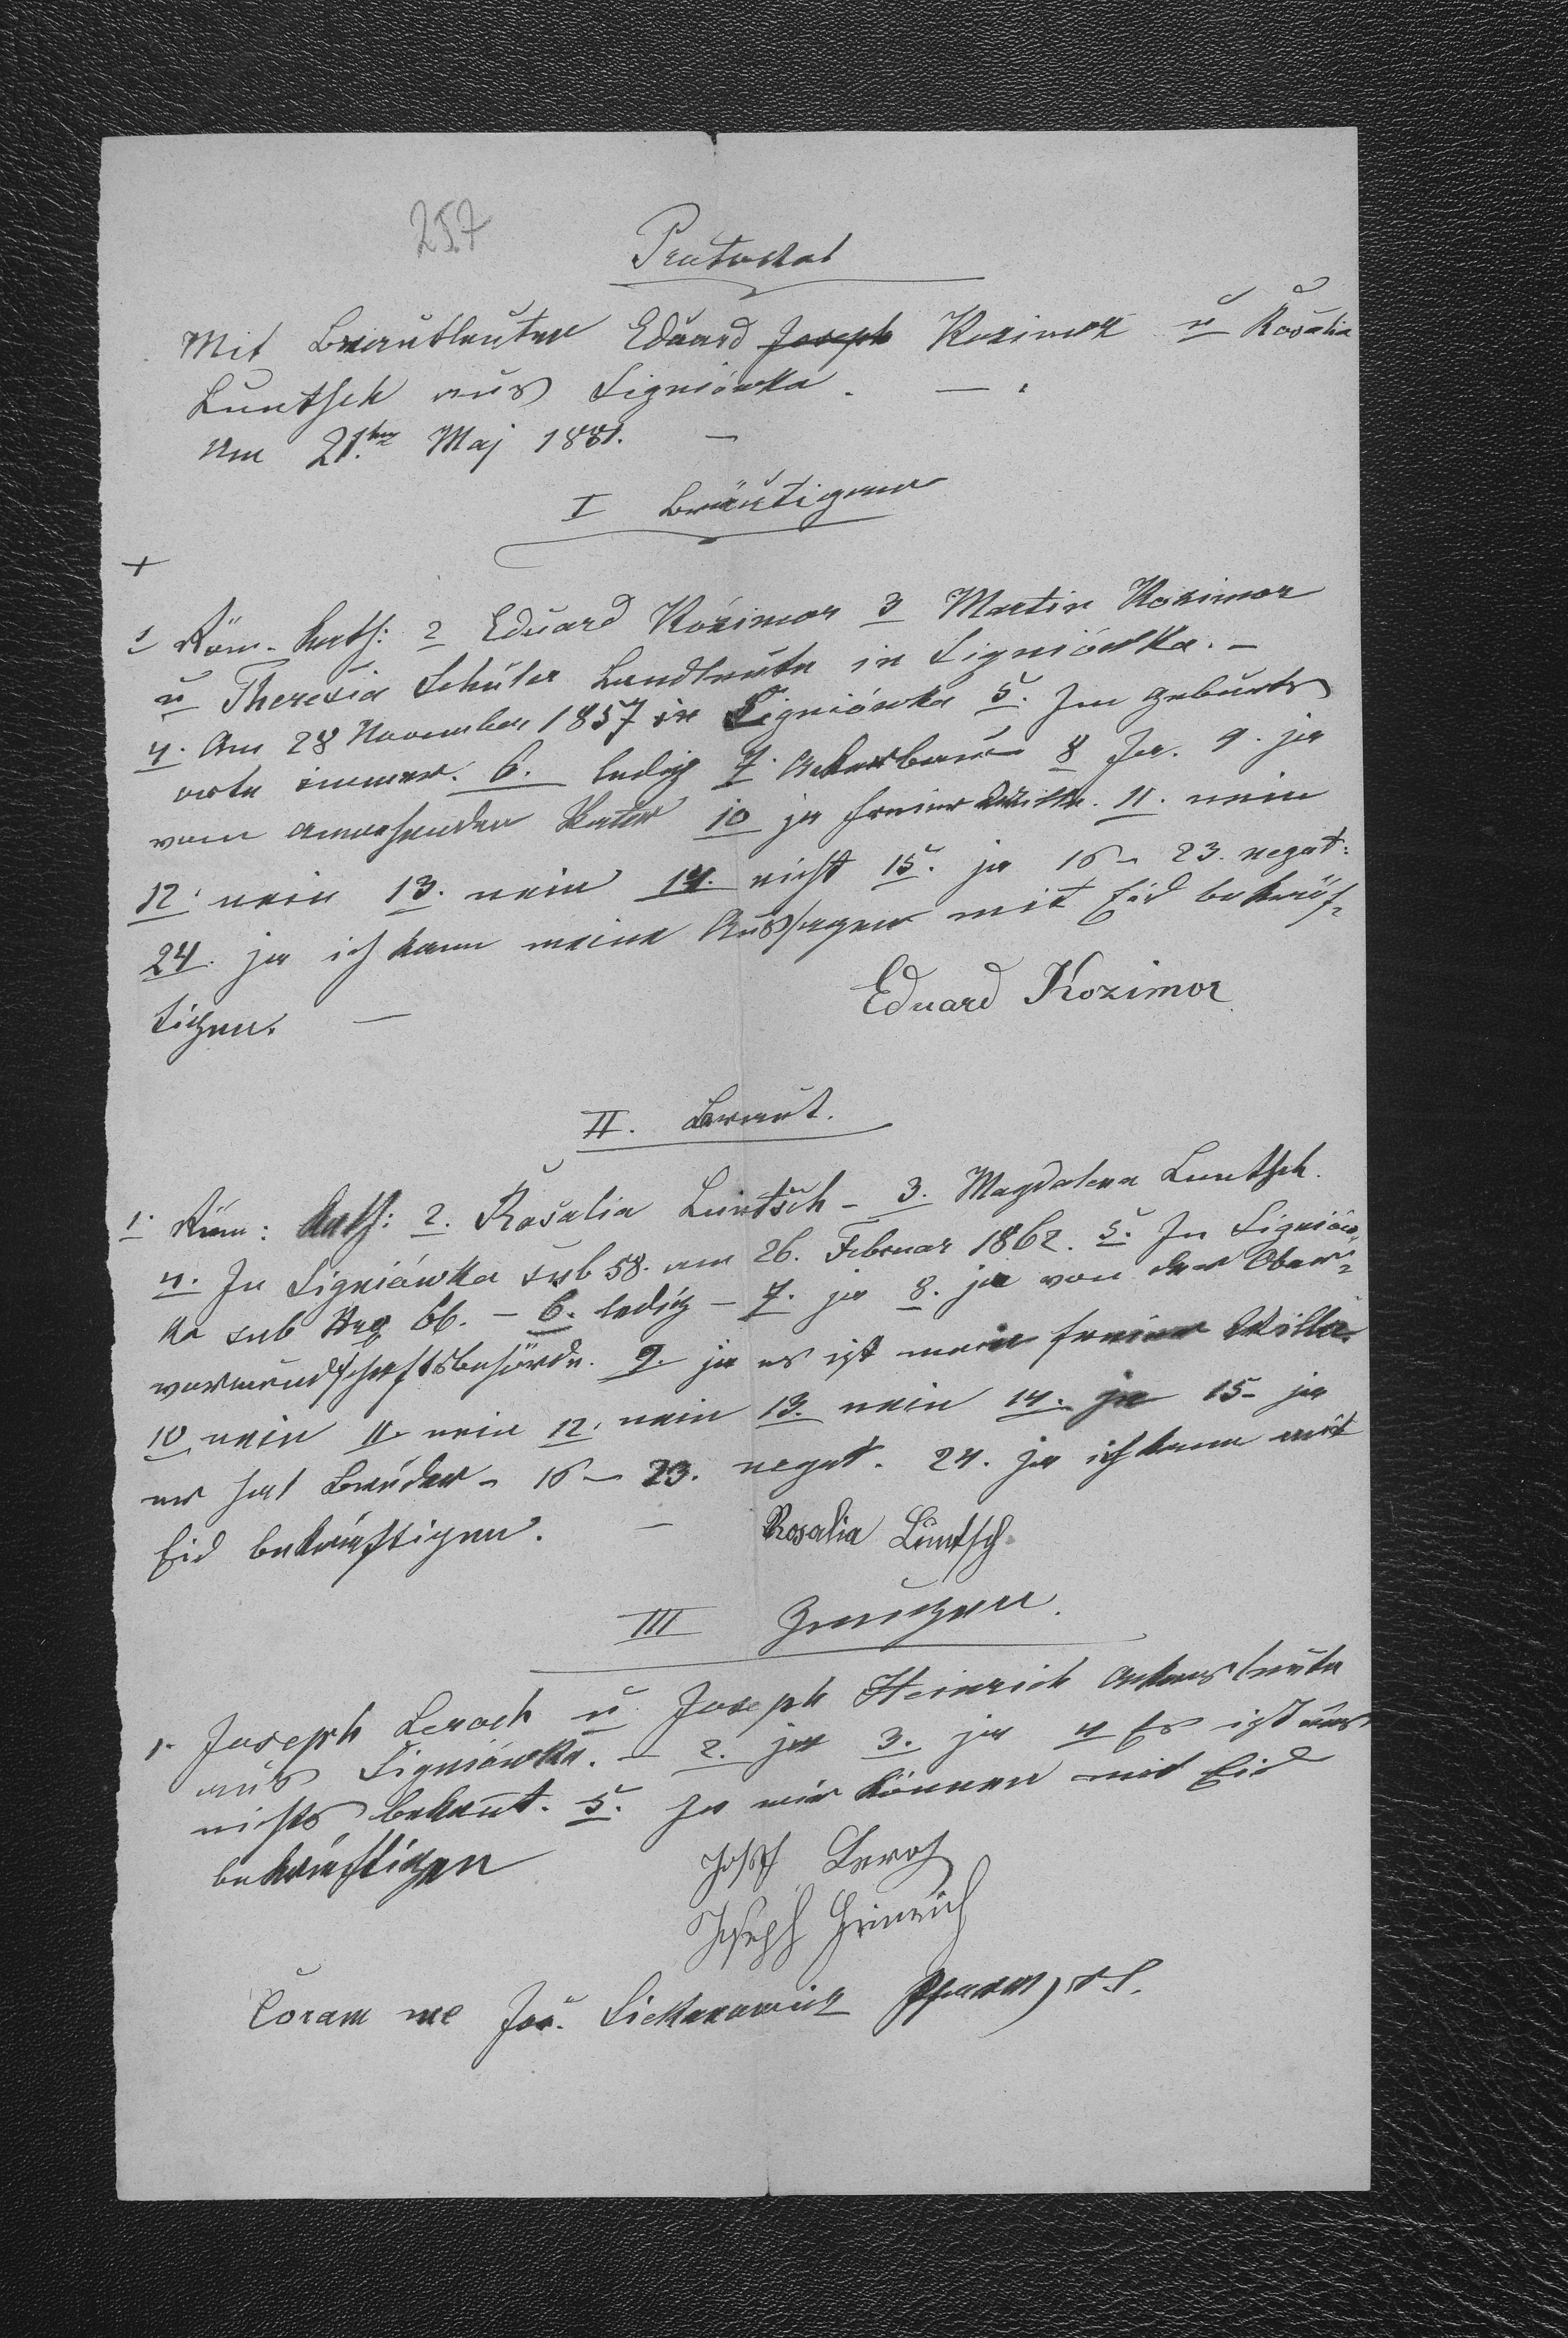 257
Protockol
Mit Brautleuten Eduard Joseph Kozimor u Rosalia
Luntsch aus Signiówka. — .
Am 21.ten Maj 1881. —
I Bräutigam
+
1 Röm. Kath: 2 Eduard Kozimor 3 Martin Kozimor
u Theresia Schüler Landleute in Signiówka. –
4. Am 28 November 1857 in Signiówka 5. Im Geburts
orte immer. 6. ledig 7. Ackerbau 8 Ja. 9. ja
vom anwesenden Vater 10 ja freier Wille. 11. nein
12. nein 13. nein 14. nicht 15. ja 16 – 23. negat:
24. ja ich kann meine Aussagen mit Eid bekräf-
tigen. —
Eduard Kozimor
II. Braut.
1. Röm: Kath: 2. Rosalia Luntsch – 3. Magdalena Luntsch.
4. In Signiówka sub 58. am 26. Februar 1862. 5. In Signiów-
ka sub Nro 66. – 6. ledig – 7. ja 8. ja von der Ober-
vormundschaftsbehörde. 9. ja es ist mein freier Wille.
10 nein 11. nein 12. nein 13. nein 14. ja 15 – ja
er hat Brüder – 16 – 23. negat. 24. ja ich kann mit
Eid bekräftigen. —
Rosalia Luntsch
III Zeugen.
1. Joseph Leroch u Joseph Heinrich Ackersleute
aus Signiówka. – 2. ja 3. ja 4 Es ist uns
nichts bekannt. 5. Ja wir können mit Eid
bekräftigen
Josef Leroch
Joseph Heinrich
Coram me Jos. Pfarrer